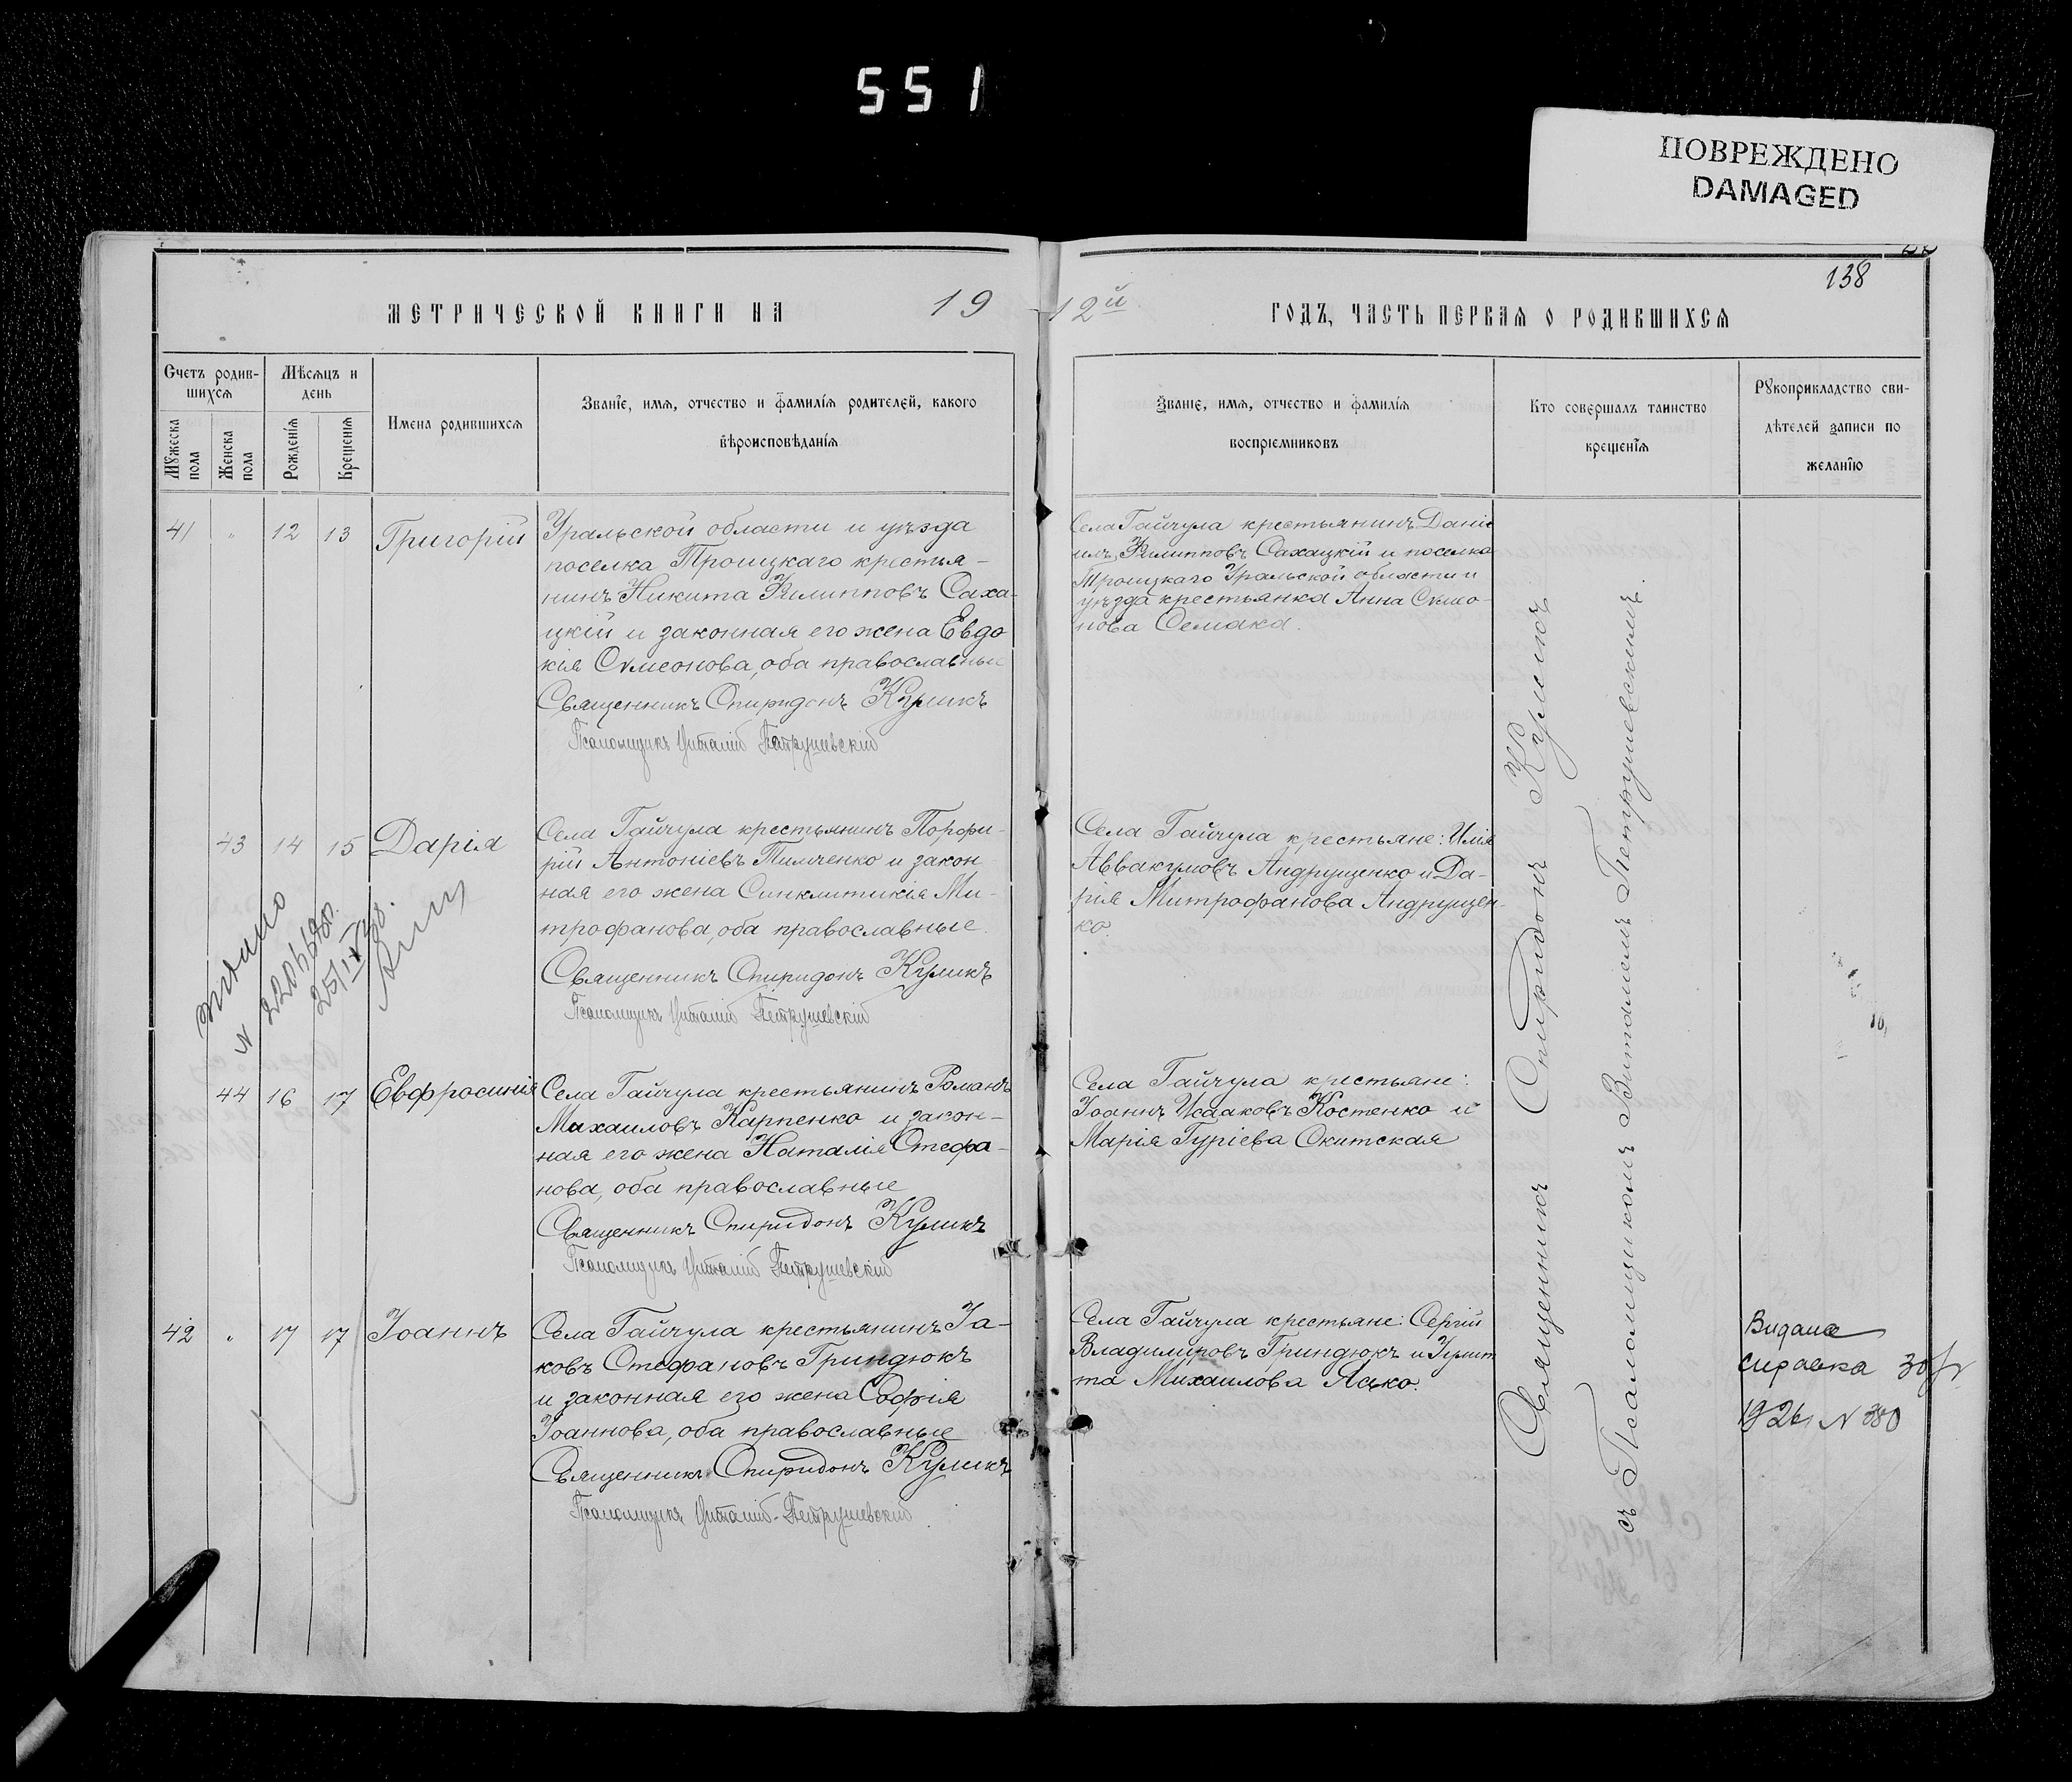 551
ПОВРЕЖДЕНО
DAMAGED
138
МЕТРИЧЕСКОЙ КНИГИ НА 19
12й ГОДЪ, ЧАСТЬ ПЕРВАЯ О РОДИВШИХСЯ
Счетъ родив-
шихся
Мужеска
пола
Женска
пола
Мѣсяцъ и
день
Рожденія
Крещенія
Имена родившихся
Званіе, имя, отчество и фамилія родителей, какого
вѣроисповѣданія
Званіе, имя, отчество и фамилія
воспріемниковъ
Кто совершалъ таинство
крещенія
Рукоприкладство сви-
дѣтелей записи по
желанію
41 " 12 13 Григорій
Уральской области и уѣзда
поселка Троицкаго крестья-
нинъ Никита Филипповъ Саха-
цкій и законная его жена Евдо
кія Сѵмеонова, оба православные
Священникъ Спиридонъ Куликъ
Псаломщикъ Виталій Петрушевскій
Села Гайчула крестьянинъ Даніи
илъ Филипповъ Сахацкій и поселка
Троицкаго Уральской области и
уѣзда крестьянка Анна Сѵмео-
нова Семака.
43 14 15 Дарія
Села Гайчула крестьянинъ Порфи-
рій Антоніевъ Тимченко и закон
ная его жена Синклитикія Ми-
трофанова, оба православные.
Священникъ Спиридонъ Куликъ
Псаломщикъ Виталій Петрушевскій
Села Гайчула крестьяне: Илія
Аввакумовъ Андрущенко и Да-
рія Митрофанова Андрущен-
ко.
44 16 17 Евфросинія
Села Гайчула крестьянинъ Романъ
Михаиловъ Карпенко и закон-
ная его жена Наталія Стефа-
нова, оба православные
Священникъ Спиридонъ Куликъ
Псаломщикъ Виталій Петрушевскій
Села Гайчула крестьяне:
Іоаннъ Исааковъ Костенко и
Марія Гуріева Скитская
42 " 17 17 Іоаннъ
Села Гайчула крестьянинъ Іа-
ковъ Стефановъ Гриндюкъ
и законная его жена Софія
Іоаннова, оба православные
Священникъ Спиридонъ Куликъ
Псаломщикъ Виталій Петрушевскій
Села Гайчула крестьяне: Сергій
Владиміровъ Гриндюкъ и Іулит
та Михаилова Ясько.
Священникъ Спиридонъ Куликъ
съ Псаломщикомъ Виталіемъ Петрушевскимъ.
Видана
справка 30/
1926 N 380